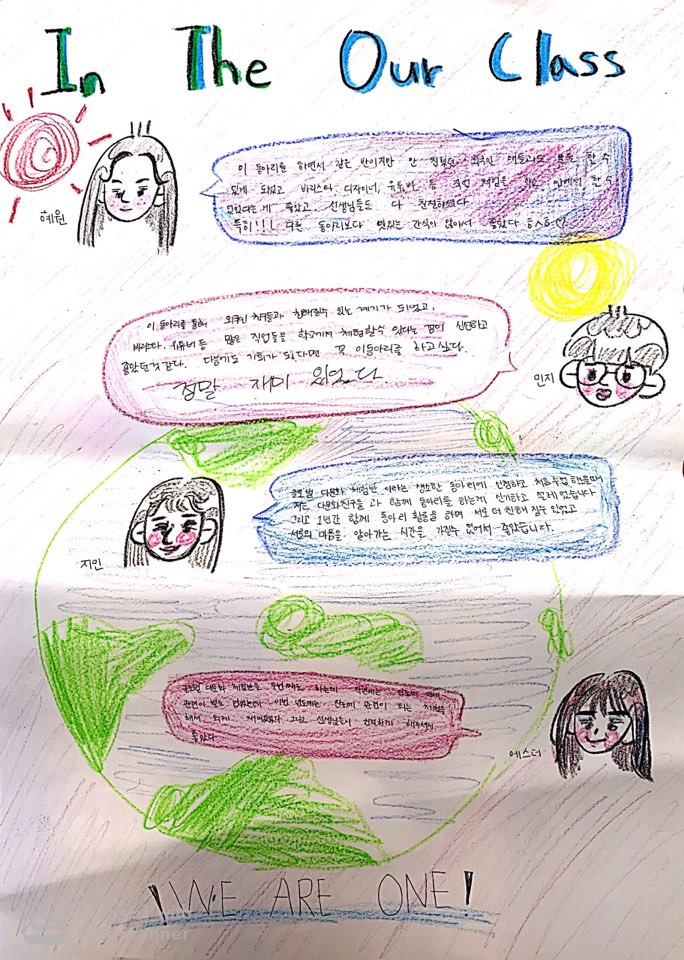 In The Our Class
이 동아리를 하면서 같은 반이지만 안 친했던 외국인 애들과도 말을 할 수
있게 되었고 바리스타, 디자이너, 유튜버 등 직업 체험을 학교 안에서 할 수
있었다는게 좋았고, 선생님들도 다 친절하셨다.
특히!!! 다른 동아리보다 맛있는 간식이 많아서 좋았다 ㅎㅅㅎ♡
혜원
이 동아리를 통해 외국인 친구들과 친해질수 있는 계기가 되었고,
바리스타, 유튜버 등 많은 직업들을 학교에서 체험할수 있다는 점이 신선하고
좋았던것 같다. 다음에도 기회가 된다면 꼭 이동아리를 하고싶다.
정말 재미 있었다
민지
글로벌 다문화 체험반 이라는 생소한 동아리에 신청하고
저는 다문화친구들 과 함께 동아리를 하는게 신기하고 설레었습니다
그리고 1년간 함께 동아리 활동을 하며 서로 더 친해 질수 있었고
서로의 마음을 알아가는 시간을 가질수 있어서 좋았습니다.
지인
글로벌 다문화 체험반을 하는데
관련이 이번 년도에는 진로에 관련이 되는
해서 되게 재미있었다 그리고 선생님들이 친절하게 해주셔서
좋았다
에스더
! WE ARE ONE !